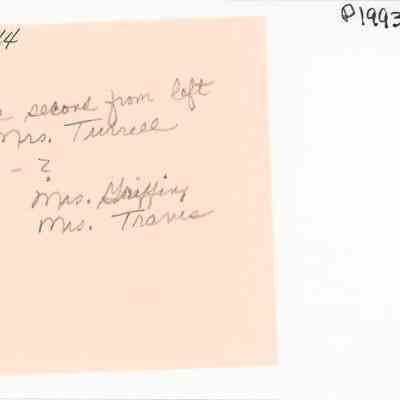 P1993
44
second from left
Mrs. Turrell
- ?
Mrs. Griffing
Mrs. Traves